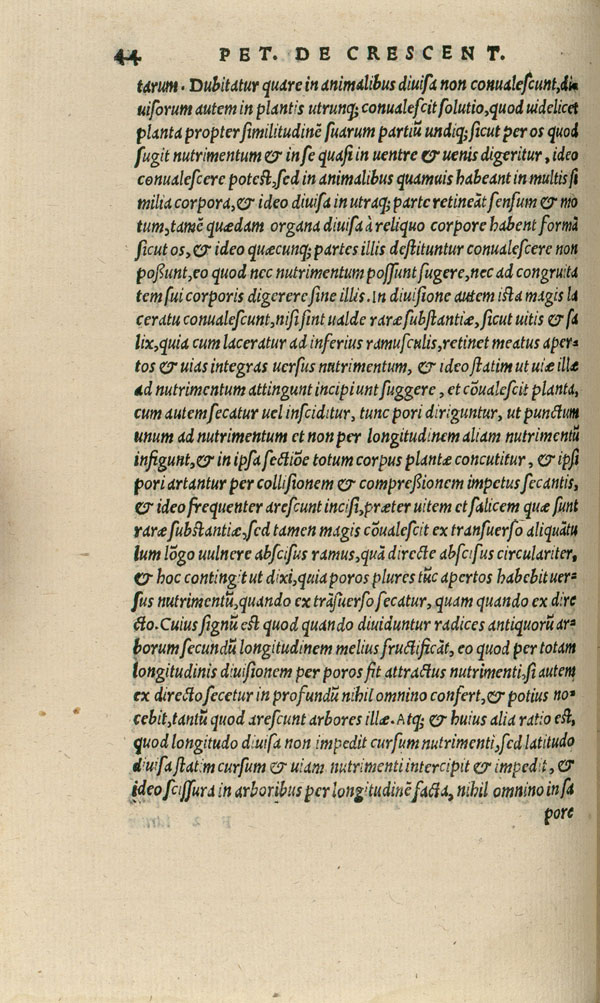 44 PET. DE CRESCENT.
tarum. Dubitatur quare in animalibus diuisa non conualeſcunt, di
uiſorum autem in plantis utrunq; conualeſcit ſolutio, quod uidelicet
planta propter ſimilitudinē ſuarum partiū undiq; ſicut per os quod
ſugit nutrimentum & in ſe quaſi in uentre & uenis digeritur, ideo
conualeſcere poteſt, ſed in animalibus quamuis habeant in multis ſi
milia corpora, & ideo diuiſa in utraq; parte retineāt ſenſum & mo
tum, tamē quædam organa diuiſa à reliquo corpore habent formā
ſicut os, & ideo quæcunq; partes illis deſtituntur conualeſcere non
poßunt, eo quod nec nutrimentum poſſunt ſugere, nec ad congruita
tem ſui corporis digerere ſine illis. In diuiſione autem iſta magis la
ceratu conualeſcunt, niſi ſint ualde raræ ſubſtantiæ, ſicut uitis & ſa
lix, quia cum laceratur ad inferius ramuſculis, retinet meatus aper-
tos & uias integras uerſus nutrimentum, & ideo ſtatim ut uiæ illæ
ad nutrimentum attingunt incipiunt ſuggere, et cōualeſcit planta,
cum autem ſecatur uel inſciditur, tunc pori diriguntur, ut punctum
unum ad nutrimentum et non per longitudinem aliam nutrimentū
infigunt, & in ipſa ſectiōe totum corpus plantæ concutitur, & ipſi
pori artantur per colliſionem & compreßionem impetus ſecantis,
& ideo frequenter areſcunt inciſi, præter uitem et ſalicem quæ ſunt
raræ ſubſtantiæ, ſed tamen magis cōualeſcit ex tranſuerſo aliquātu
lum lōgo uulnere abſciſus ramus, quā directe abſciſus circulariter,
& hoc contingit ut dixi, quia poros plures tūc apertos habebit uer-
ſus nutrimentū, quando ex trāſuerſo ſecatur, quam quando ex dire
cto. Cuius ſignū eſt quod quando diuiduntur radices antiquorū ar-
borum ſecundū longitudinem melius fructificāt, eo quod per totam
longitudinis diuiſionem per poros fit attractus nutrimenti, ſi autem
ex directo ſecetur in profundū nihil omnino confert, & potius no-
cebit, tantū quod areſcunt arbores illæ. Atq; & huius alia ratio eſt,
quod longitudo diuiſa non impedit curſum nutrimenti, ſed latitudo
diuiſa ſtatim curſum & uiam nutrimenti intercipit & impedit, &
ideo ſciſſura in arboribus per longitudinē facta, nihil omnino in ſa
pore